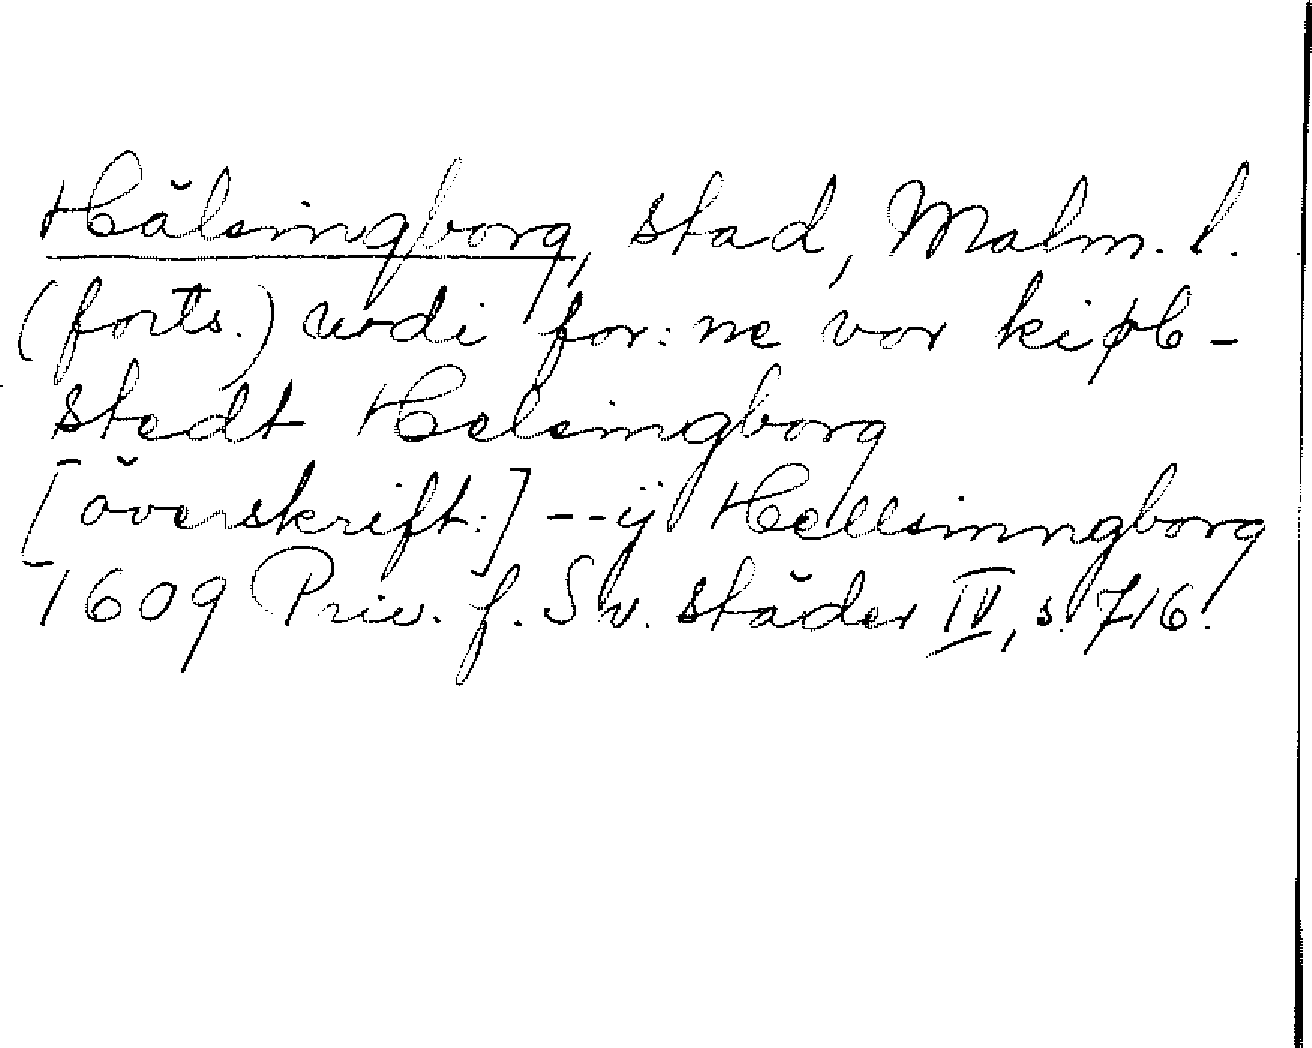 Hälsingborg, stad, Malm. l.
(forts.) wdi for:ne vor kiøb-
stedt Helsingborg
[överskrift:] -- ÿ Hellsinngborg
1609 Priv. f. Sv. städer IV, s. 716.